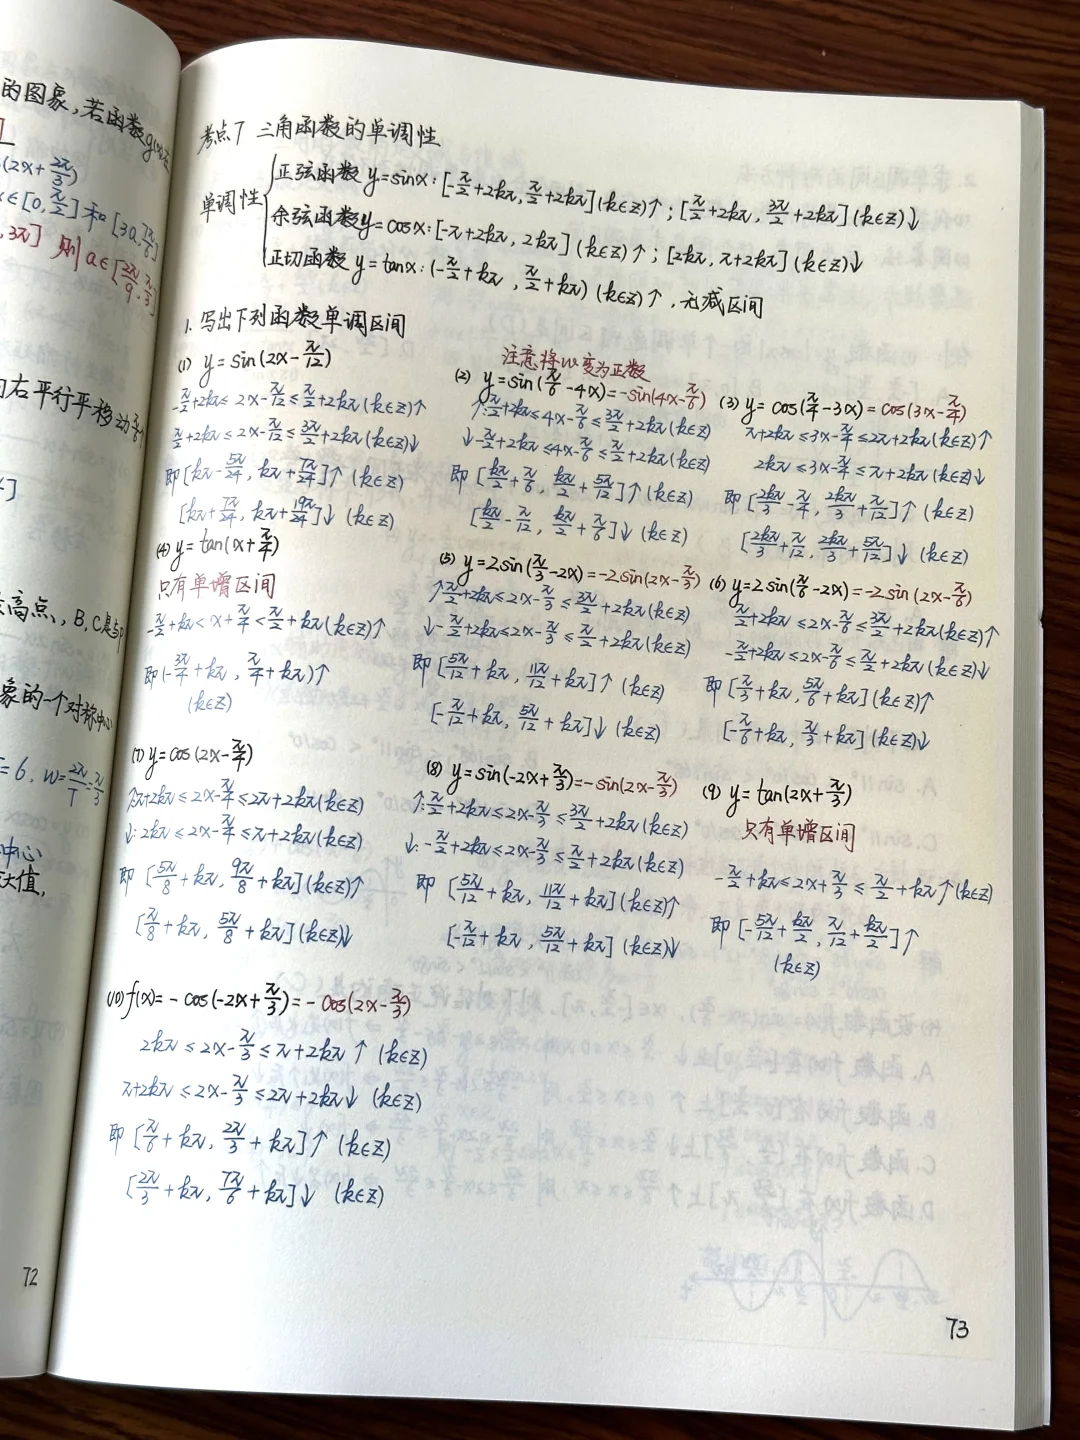 的图象,若函数g(x)在
(2x+2π/3)
x∈[0,π/2]和[3a,7π/6]
,3π] 则a∈[2π/9,π/3]
向右平行平移动
最高点,B,C是与
象的一个对称中心
=6, w=2π/T=π/3
中心
大值,
72
考点7 三角函数的单调性
单调性
正弦函数y=sinx:[-π/2+2kπ,π/2+2kπ](k∈Z)↑;[π/2+2kπ,3π/2+2kπ](k∈Z)↓
余弦函数y=cosx:[-π+2kπ,2kπ](k∈Z)↑;[2kπ,π+2kπ](k∈Z)↓
正切函数y=tanx:(-π/2+kπ,π/2+kπ)(k∈Z)↑,无减区间
1.写出下列函数单调区间
(1) y=sin(2x-π/12)
-π/2+2kπ≤2x-π/12≤π/2+2kπ(k∈Z)↑
π/2+2kπ≤2x-π/12≤3π/2+2kπ(k∈Z)↓
即[kπ-5π/24,kπ+7π/24]↑(k∈Z)
[kπ+7π/24,kπ+19π/24]↓(k∈Z)
注意将w变为正数
(2) y=sin(π/6-4x)=-sin(4x-π/6)
↑:π/2+2kπ≤4x-π/6≤3π/2+2kπ(k∈Z)
↓-π/2+2kπ≤4x-π/6≤π/2+2kπ(k∈Z)
即[kπ/2+π/6,kπ/2+5π/12]↑(k∈Z)
[kπ/2-π/12,kπ/2+π/6]↓(k∈Z)
(3) y=cos(π/4-3x)=cos(3x-π/4)
π+2kπ≤3x-π/4≤2π+2kπ(k∈Z)↑
2kπ≤3x-π/4≤π+2kπ(k∈Z)↓
即[2kπ/3-π/4,2kπ/3+π/12]↑(k∈Z)
[2kπ/3+π/12,2kπ/3+5π/12]↓(k∈Z)
(4) y=tan(x+π/4)
只有单增区间
-π/2+kπ<x+π/4<π/2+kπ(k∈Z)↑
即(-3π/4+kπ,π/4+kπ)↑
(k∈Z)
(5) y=2sin(π/3-2x)=-2sin(2x-π/3)
↑π/2+2kπ≤2x-π/3≤3π/2+2kπ(k∈Z)
↓-π/2+2kπ≤2x-π/3≤π/2+2kπ(k∈Z)
即[5π/12+kπ,11π/12+kπ]↑(k∈Z)
[-π/12+kπ,5π/12+kπ]↓(k∈Z)
(6) y=2sin(π/6-2x)=-2sin(2x-π/6)
π/2+2kπ≤2x-π/6≤3π/2+2kπ(k∈Z)↑
-π/2+2kπ≤2x-π/6≤π/2+2kπ(k∈Z)↓
即[π/3+kπ,5π/6+kπ](k∈Z)↑
[-π/6+kπ,π/3+kπ](k∈Z)↓
(7) y=cos(2x-π/4)
↑π+2kπ≤2x-π/4≤2π+2kπ(k∈Z)
↓:2kπ≤2x-π/4≤π+2kπ(k∈Z)
即[5π/8+kπ,9π/8+kπ](k∈Z)↑
[π/8+kπ,5π/8+kπ](k∈Z)↓
(8) y=sin(-2x+π/3)=-sin(2x-π/3)
↑:π/2+2kπ≤2x-π/3≤3π/2+2kπ(k∈Z)
↓:-π/2+2kπ≤2x-π/3≤π/2+2kπ(k∈Z)
即[5π/12+kπ,11π/12+kπ](k∈Z)↑
[-π/12+kπ,5π/12+kπ](k∈Z)↓
(9) y=tan(2x+π/3)
只有单增区间
-π/2+kπ≤2x+π/3≤π/2+kπ↑(k∈Z)
即[-5π/12+kπ/2,π/12+kπ/2]↑
(k∈Z)
(10) f(x)=-cos(-2x+π/3)=-cos(2x-π/3)
2kπ≤2x-π/3≤π+2kπ↑(k∈Z)
π+2kπ≤2x-π/3≤2π+2kπ↓(k∈Z)
即[π/6+kπ,2π/3+kπ]↑(k∈Z)
[2π/3+kπ,7π/6+kπ]↓(k∈Z)
73